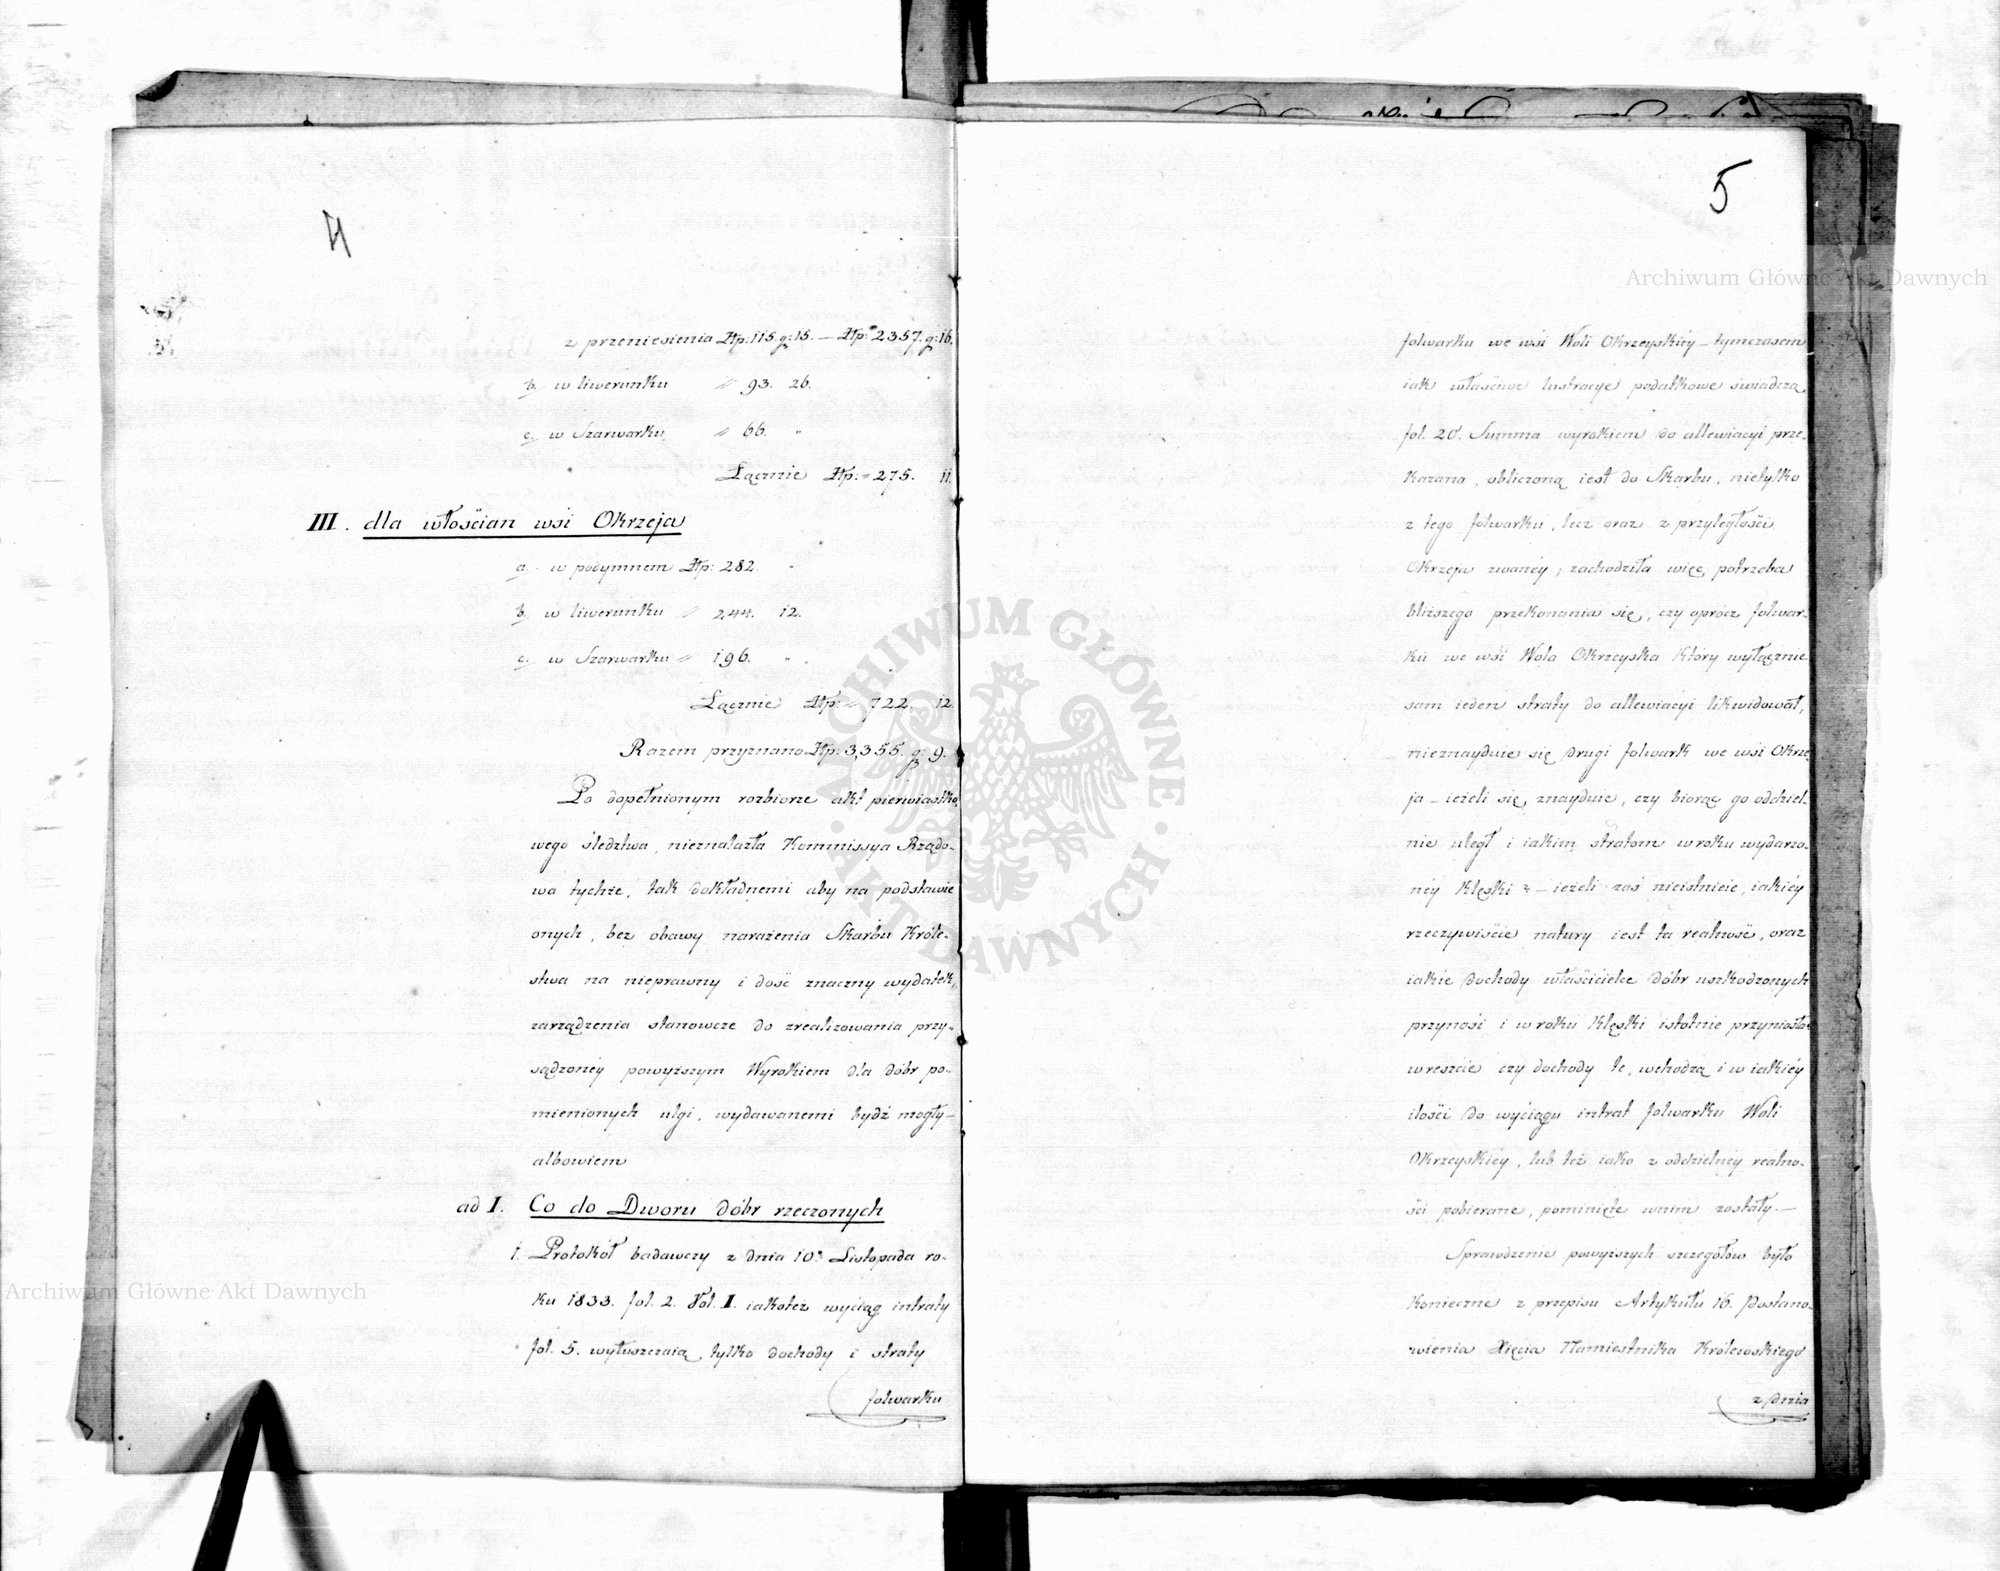 4
z przeniesienia Złp: 115. g: 15. — Złp: 2357. g: 16.
b. w liwerunku " 93. 26.
c. w Szarwarku " 66. "
Łącznie Złp: = 275. 11.
III. dla włościan wsi Okrzeja
a. w podymnem Złp: 282. "
b. w liwerunku " 244. 12.
c. w Szarwarku " 196. "
Łącznie Złp: " 722. 12.
Razem przyznano Złp: 3,355. g: 9.
Po dopełnionym rozbiorze akt pierwiastko-
wego śledztwa, nieznalazła Kommissya Rządo-
wa tychże, tak dokładnemi aby na podstawie
onych, bez obawy narażenia Skarbu Króle-
stwa na nieprawny i dość znaczny wydatek,
zarządzenia stanowcze do zrealizowania przy-
sądzonéy powyższym Wyrokiem dla dóbr po-
mienionych ulgi, wydawanemi bydź mogły —
albowiem
ad I. Co do Dworu dóbr rzeczonych
1. Protokół badawczy z dnia 10. Listopada ro-
ku 1833. fol. 2. Vol. I. iakoteż wyciąg intraty
fol. 5. wyłuszczaią tylko dochody i straty
folwarku
5
folwarku we wsi Woli Okrzeyskiéy — tymczasem
iak właściwe lustracye podatkowe świadczą
fol. 20. Summa wyrokiem do allewiacyi prze-
kazana, obliczoną iest do Skarbu, nietylko
z tego folwarku, lecz oraz z przyległości
Okrzeja zwanéy; zachodziła więc potrzeba
bliższego przekonania się, czy oprócz folwar-
ku we wsi Wola Okrzeyska który wyłącznie
sam ieden straty do allewiacyi likwidował,
nieznayduie się drugi folwark we wsi Okrze-
ja — ieżeli się znayduie, czy biorąc go oddziel-
nie uległ i iakim stratom w roku wydarzo-
néy klęski? — ieżeli zaś nieistnieie, iakiéy
rzeczywiście natury iest ta realność, oraz
iakie dochody właścicielce dóbr uszkodzonych
przynosi i w roku klęski istotnie przyniosła
wreszcie czy dochody te, wchodzą i w iakiéy
ilości do wyciągu intrat folwarku Woli
Okrzeyskiéy, lub też iako z oddzielnéy realno-
ści pobierane, pominięte wnim zostały. —
Sprawdzenie powyższych szczegółów było
konieczne z przepisu Artykułu 16. Postano-
wienia Xięcia Namiestnika Królewskiego
z dnia
Archiwum Główne Akt Dawnych
Archiwum Główne Akt Dawnych
ARCHIWUM GŁÓWNE AKT DAWNYCH